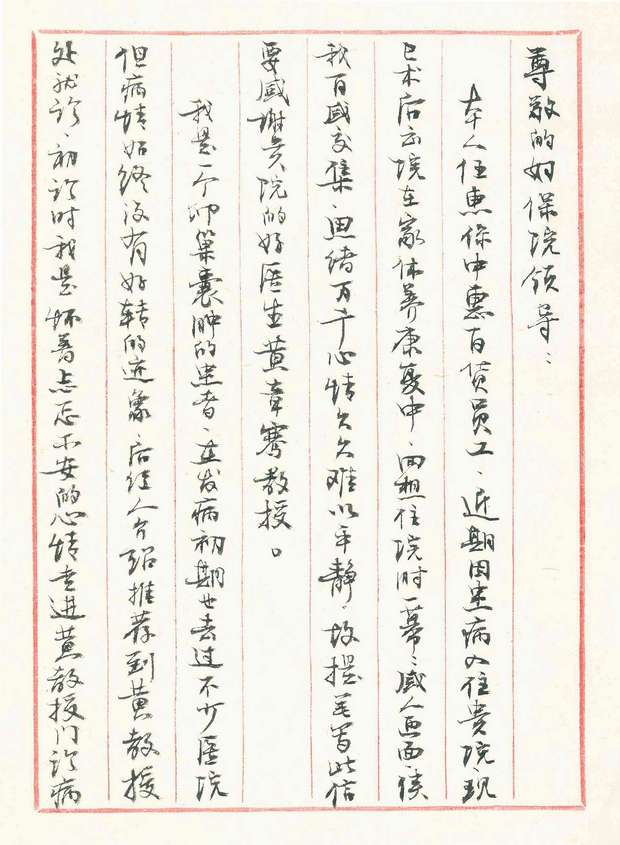 尊敬的妇保院领导：
本人任惠保中惠百货员工、近期因患病入住贵院现
已术后出院在家休养康复中、回想住院时一幕々感人画面使
我百感交集、思绪万千心情久久难以平静、故提笔写此信
要感谢贵院的好医生黄章骞教授。
我是一个卵巢囊肿的患者、在发病初期也去过不少医院
但病情始终没有好转的迹象、后经人介绍推荐到黄教授
处就诊、初诊时我是怀着忐忑不安的心情走进黄教授门诊病